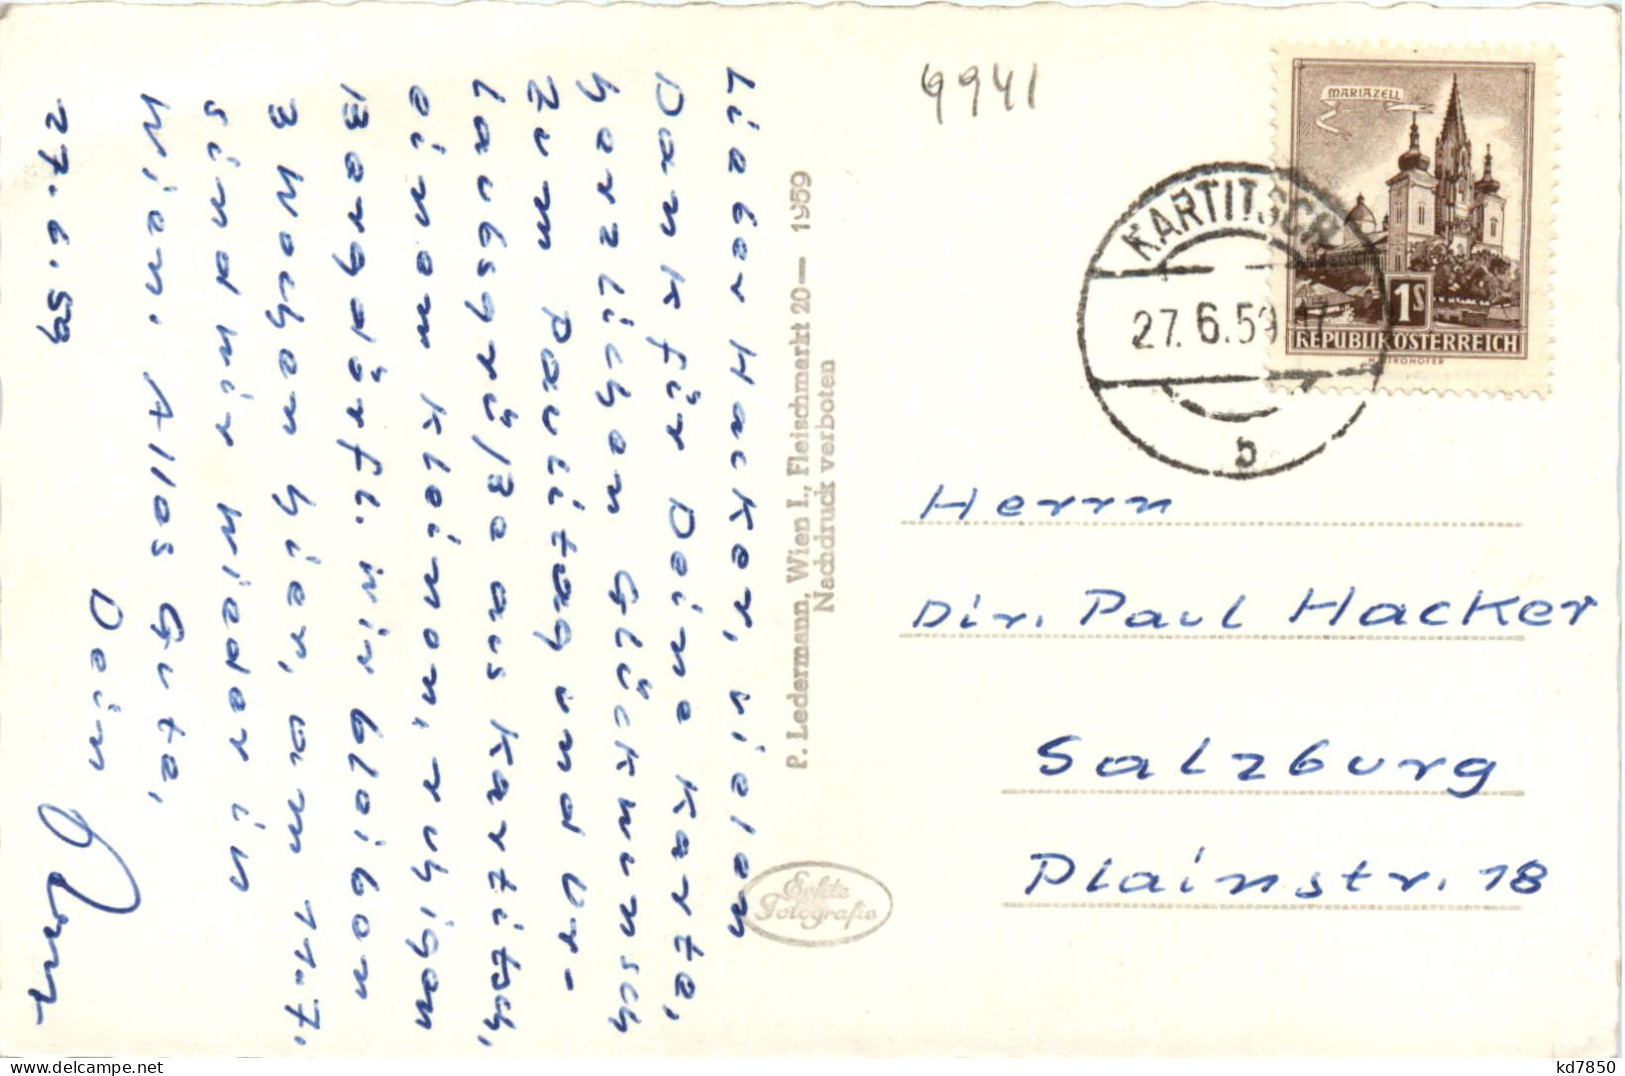 Lieber Hacker, vielen
Dank für Deine Karte,
herzlichen Glückwunsch
zum Paulitag und Ur-
laubsgrüße aus Kartitsch,
einem kleinen, ruhigen
Bergdörfl. Wir bleiben
3 Wochen hier, am 11.7.
sind wir wieder in
Wien. Alles Gute,
Dein
27.6.59
P. Ledermann, Wien I., Fleischmarkt 20— 1959
Nachdruck verboten
Echte
Fotografie
9941
MARIAZELL
1S
REPUBLIK ÖSTERREICH
KARTITSCH
27. 6. 59 17
b
Herrn
Dir. Paul Hacker
Salzburg
Plainstr. 18
delcampe.net
kd7850